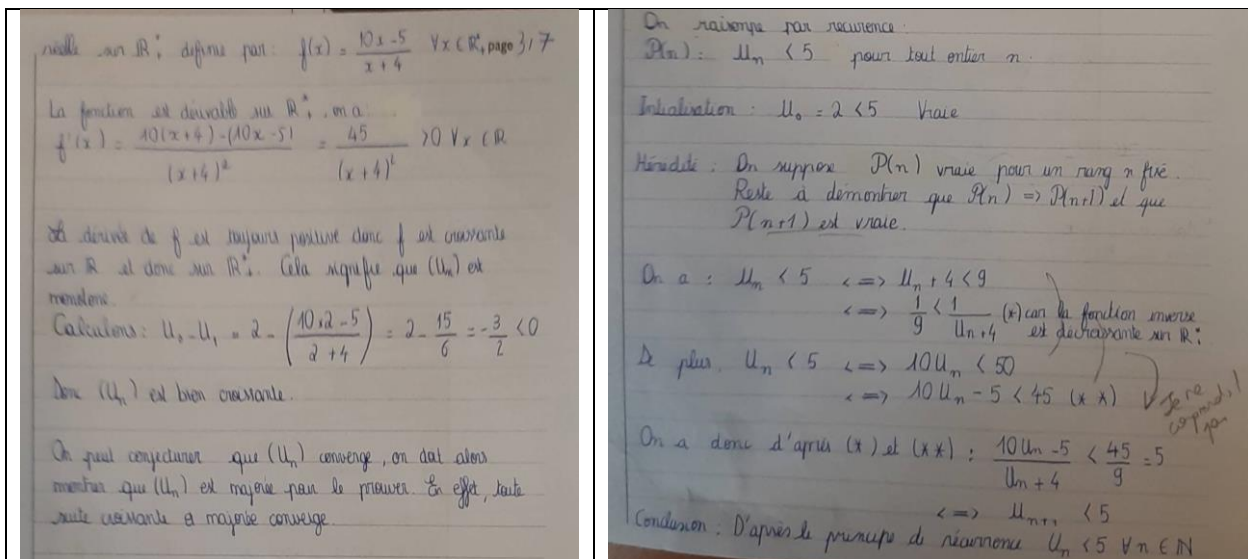 réelle sur ℝ*₊ définie par : f(x) = (10x-5)/(x+4) ∀x ∈ ℝ*₊ page 3/7
La fonction est dérivable sur ℝ*₊, on a :
f'(x) = (10(x+4)-(10x-5))/(x+4)² = 45/(x+4)² >0 ∀x ∈ ℝ
dérivée de f est toujours positive donc f est croissante
sur ℝ et donc sur ℝ*₊. Cela signifie que (Uₙ) est
monotone.
Calculons : U₀-U₁ = 2 - ((10×2-5)/(2+4)) = 2 - 15/6 = -3/2 <0
Donc (Uₙ) est bien croissante.
On peut conjecturer que (Uₙ) converge, on doit alors
montrer que (Uₙ) est majorée pour le prouver. En effet, toute
suite croissante et majorée converge.
On raisonne par récurrence :
P(n) : Uₙ < 5 pour tout entier n.
Initialisation : U₀ = 2 < 5 Vraie
Hérédité : On suppose P(n) vraie pour un rang n fixé.
Reste à démontrer que P(n) => P(n+1) et que
P(n+1) est vraie.
On a : Uₙ < 5 <=> Uₙ + 4 < 9
<=> 1/9 < 1/(Uₙ+4) (*) car la fonction inverse
est décroissante sur ℝ*₊
De plus, Uₙ < 5 <=> 10Uₙ < 50
<=> 10Uₙ - 5 < 45 (**)
Je ne
comprend
pas
!
On a donc d'après (*) et (**) : (10Uₙ-5)/(Uₙ+4) < 45/9 = 5
<=> Uₙ₊₁ < 5
Conclusion : D'après le principe de récurrence Uₙ < 5 ∀n ∈ ℕ